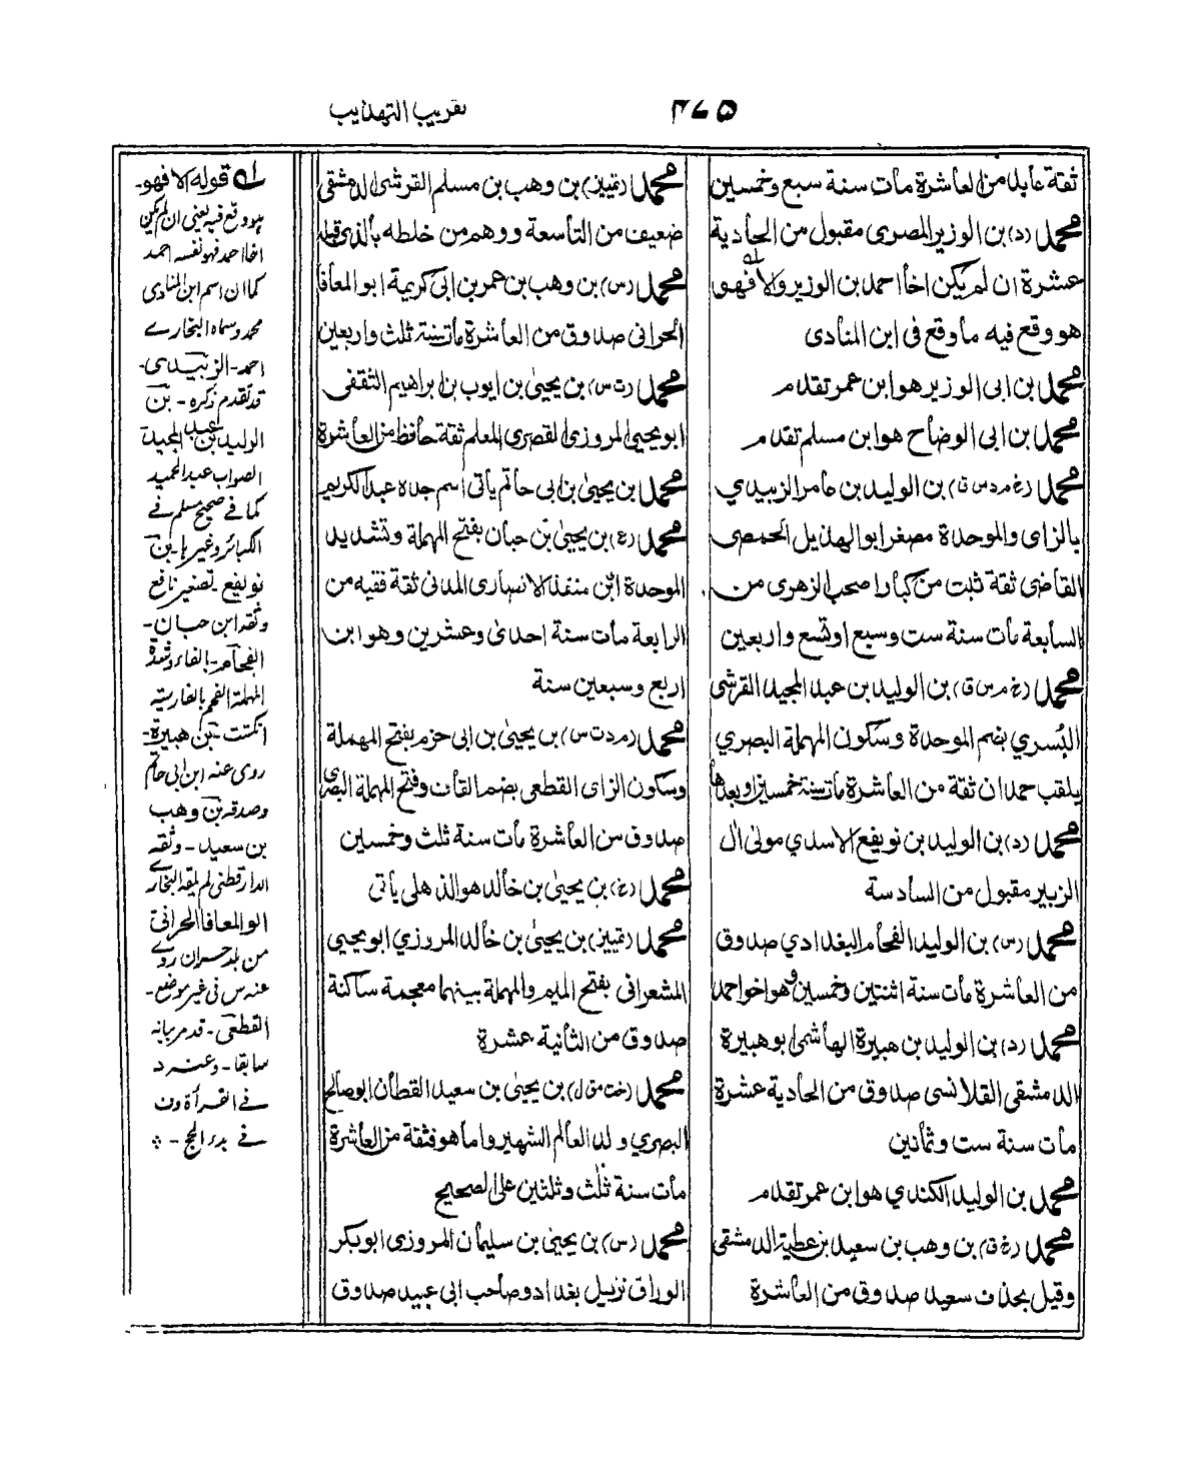 تقريب التهذيب
٣٧٥
ثقة عابد من العاشرة مات سنة سبع وخمسين
محمد (د) بن الوزير المصري مقبول من الحادية
عشرة ان لم يكن اخا احمد بن الوزير والا فهو
هو وقع فيه ما وقع فى ابن المنادى
محمد بن ابى الوزير هو ابن عمر تقدم
محمد بن ابى الوضاح هو ابن مسلم تقدم
محمد (خ م د س ق) بن الوليد بن عامر الزبيدي
بالزاى والموحدة مصغر ابو الهذيل الحمصى
القاضى ثقة ثبت من كبار اصحب الزهرى من
السابعة مات سنة ست وسبع او تسع واربعين
محمد (خ م س ق) بن الوليد بن عبد المجيد القرشى
البُسري بضم الموحدة وسكون المهملة البصري
يلقب حمدان ثقة من العاشرة مات سنة خمسين او بعدها
محمد (د) بن الوليد بن نويفع الاسدي مولى ال
الزبير مقبول من السادسة
محمد (س) بن الوليد الفحام البغدادي صدوق
من العاشرة مات سنة اثنتين وخمسين وهو اخو احمد
محمد (د) بن الوليد بن هبيرة الهاشمى ابو هبيرة
الدمشقى القلانسى صدوق من الحادية عشرة
مات سنة ست وثمانين
محمد بن الوليد الكندي هو ابن عمر تقدم
محمد (خ ق) بن وهب بن سعيد بن عطية الدمشقى
وقيل بحذف سعيد صدوق من العاشرة
محمد (تمييز) بن وهب بن مسلم القرشى الدمشقى
ضعيف من التاسعة ووهم من خلطه بالذى قبله
محمد (س) بن وهب بن عمر بن ابى كريمة ابو المعافا
الحرانى صدوق من العاشرة مات سنة ثلث واربعين
محمد (ت س) بن يحيىٰ بن ايوب بن ابراهيم الثقفى
ابو يحيى المروزى القصرى المعلم ثقة حافظ من العاشرة
محمد بن يحيىٰ بن ابى حاتم ياتى اسم جده عبد الكريم
محمد (ع) بن يحيىٰ بن حبان بفتح المهملة وتشديد
الموحدة ابن منقذ الانصارى المدنى ثقة فقيه من
الرابعة مات سنة احدىٰ وعشرين وهو ابن
اربع وسبعين سنة
محمد (م د ت س) بن يحيىٰ بن ابى حزم بفتح المهملة
وسكون الزاى القطعى بضم القاف وفتح المهملة البصرى
صدوق من العاشرة مات سنة ثلث وخمسين
محمد (خ) بن يحيىٰ بن خالد هو الذهلى ياتى
محمد (تمييز) بن يحيىٰ بن خالد المروزي ابو يحيى
المشعرانى بفتح الميم والمهملة بينهما معجمة ساكنة
صدوق من الثانية عشرة
محمد (خت مق ل) بن يحيىٰ بن سعيد القطان ابو صالح
البصري ولد العالم الشهير واما هو فثقة من العاشرة
مات سنة ثلث وثلثين على الصحيح
محمد (س) بن يحيىٰ بن سليمان المروزى ابو بكر
الوراق نزيل بغداد وصاحب ابى عبيد صدوق
له قوله الا فهو-
هو وقع فيه يعنى ان لم يكن
اخا احمد فهو نفسه احمد
كما ان اسم ابن المنادى
محمد وسماه البخارے
احمد-الزبيدى-
قد تقدم ذكره - بن
الوليد بن عبد المجيد
الصواب عبد الحميد
كما فے صحيح مسلم فے
الكبائر وغيرها-بن
نويفع-تصغير نافع
وثقه ابن حبان-
الفحام-بالفاء وشدة
المهملة الفحم بالفارسية
انكشت-بن هبيرة-
روى عنه ابن ابى حاتم
وصدقه-بن وهب
بن سعيد-وثقه
الدارقطنى لم يلقه البخارے
ابو المعافا الحرانى
من بلد حران روے
عنه س فى غير موضع-
القطعى-قد مر بيانه
سابقا-وعند د
فے القراءة وت
فے بدء الحج-